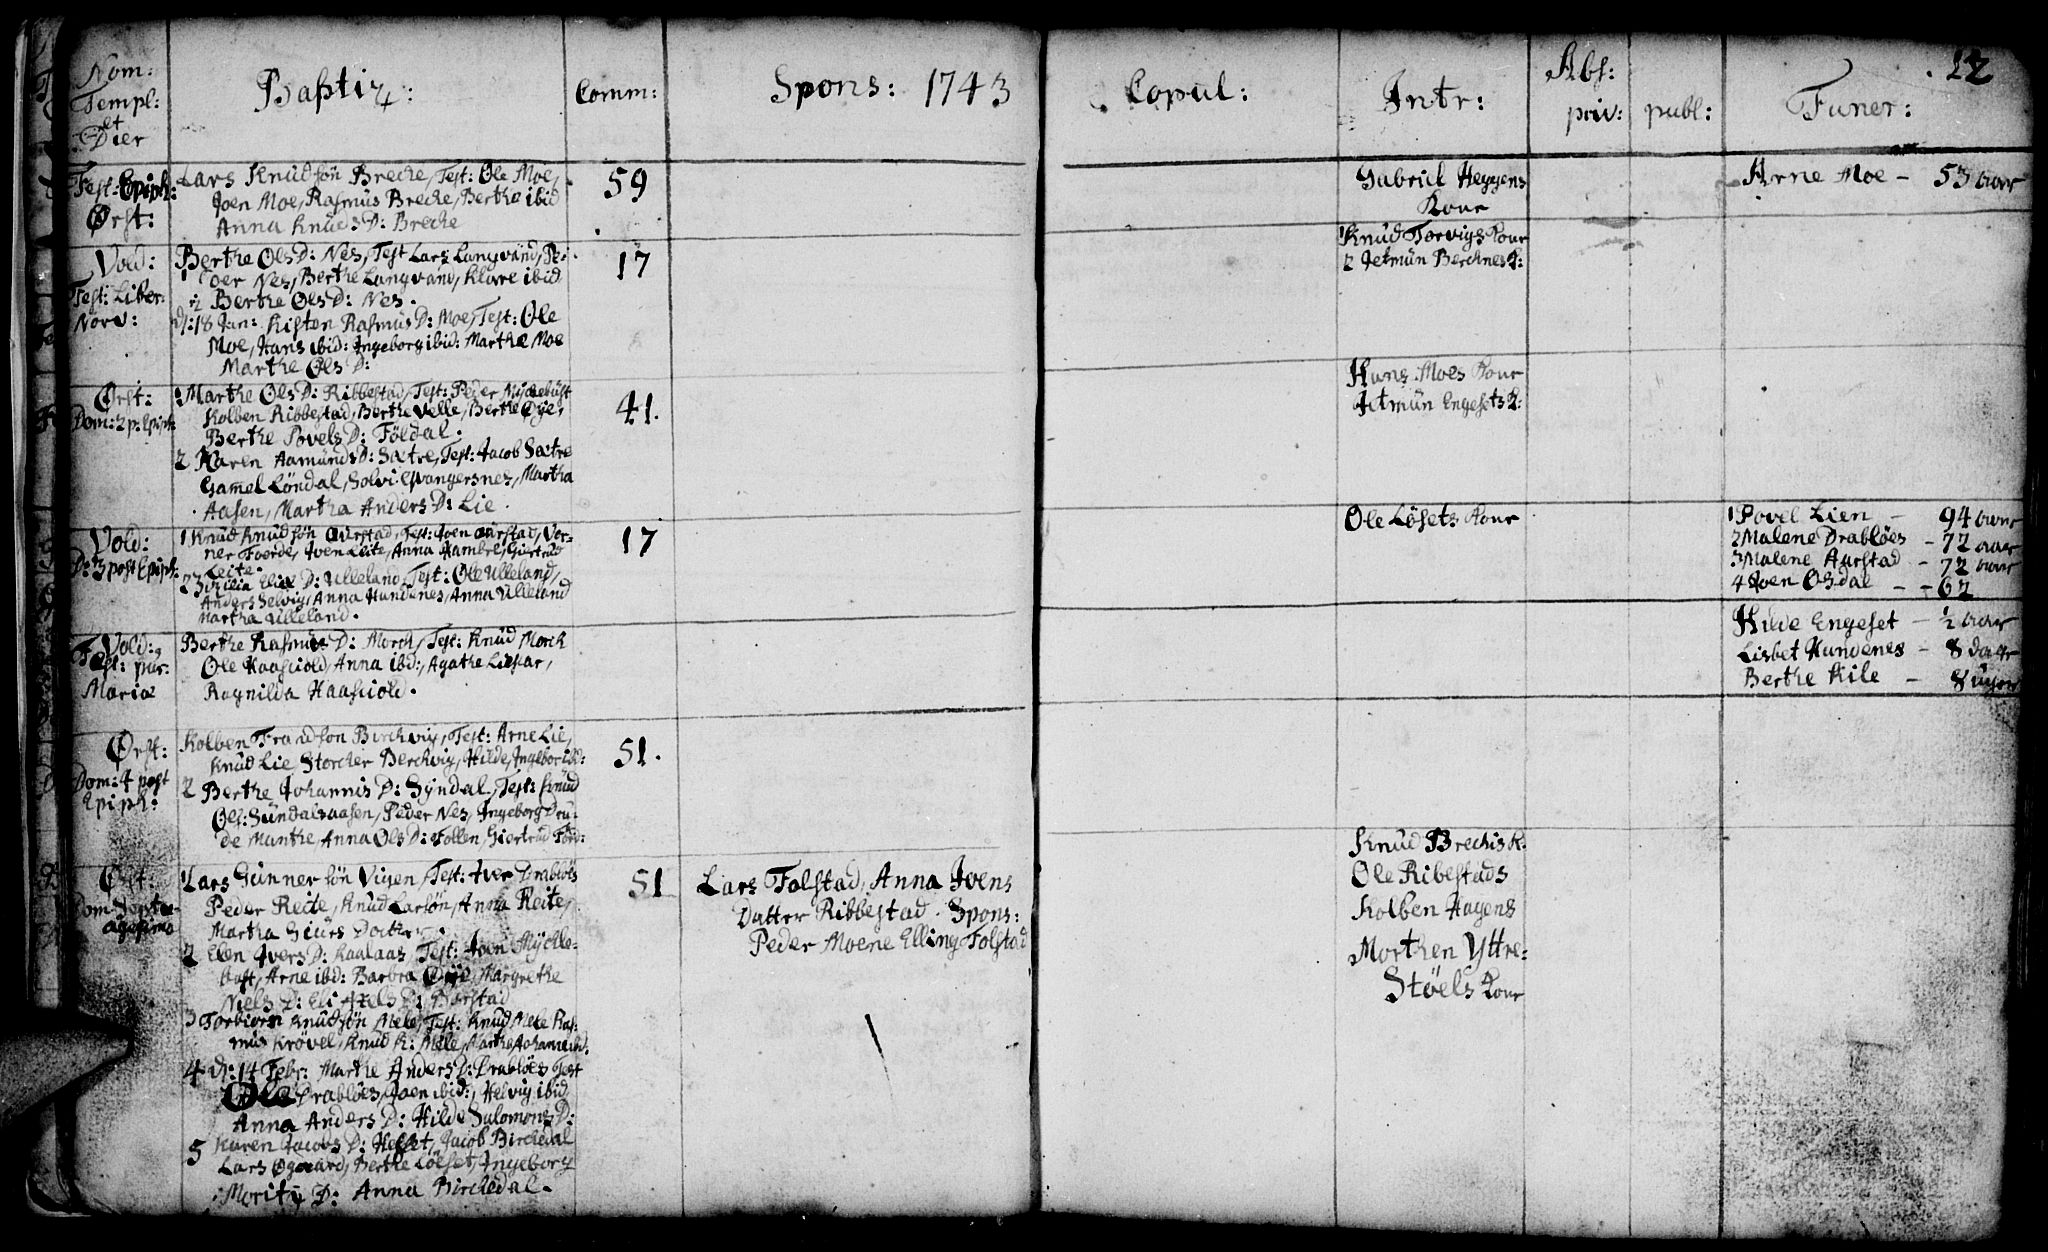 Nom:
Templ:
et
Dier
Baptiz:
Comm:
Spons: 1743
Copul:
Intr:
Abs:
priv:
publ:
Funer:
12
Fest: Epiph:
Ørst:
Lars Knudsön Breche, Test: Ole Moe,
Joen Moe, Rasmus Breche, Berthe ibid
Anna Knuds D: Breche
59
Gabriel Heggens
Kone
Arne Moe - 53 aar
Vold:
Fest: Liber:
Norv:
Berthe Ols D: Nes, Test Lars Langvand, Pe-
der Nes, Berthe Langvand, Klare ibid
Berthe Ols D: Nes.
d: 18 Jan: Kisten Rasmus D: Moe, Test: Ole
Moe, Hans ibid: Ingeborg ibid: Marthe Moe
Marthe Ols D:
17
1 Knud Torvigs Kone
2 Jetmün Berchnes K:
Ørst:
Dom: 2 p: Epiph
1 Marthe Ols D: Ribbestad, Test: Peder Myclebust
Kolben Ribbestad, Berthe Velle, Berthe Øye,
Berthe Povels D: Földal.
2 Karen Aamunds D: Sætre, Test: Jacob Sætre
Gamel Löndal, Solvi Qvangersnes, Martha
Aasen, Martha Anders D: Lie.
41.
Hans Moes Kone
Jetmün Engesets K:
Vold:
D: 3 post Epiph:
1 Knud Knudsön Aurstad, Test: Joen Aurstad, Ver-
ner Foerde, Iven Leite, Anna Hambre, Giertrud
Leite.
2 Elias D: Ulleland, Test: Ole Ulleland,
Anders Selvig, Anna Hundenes, Anna Ulleland
Martha Ulleland.
17
Ole Lösets Kone
1 Povel Lien - 94 aar
2 Malene Drabløes - 72 aar
3 Malene Aurstad - 72 aar
4 Joen Osdal - - 62
Vold:
Fest: pur:
Mariæ
Berthe Rasmus D: Morch, Test: Knud Morch
Ole Haaskiold, Anna ibd:, Agathe Lieskar,
Ragnilda Haaskiold.
Hilde Engeset - ½ aar
Lisbet Hundenes - 8 dage
Berthe Kile - 8 uger
Ørst:
Dom: 4 post
Epiph:
Kolben Frandson Birchvig, Test: Arne Lie,
Knud Lie Storcher Berchvig, Hilde, Ingebor ibd:
2 Berthe Johannis D: Syndal, Test: Knud
Ols: Sundalsaasen, Peder Nes, Ingeborg Dru-
de Munthe, Anna Ols D: Follen, Giertrud
51.
Ørst:
Dom: Septu-
agesima
1 Lars Gunnersön Vigen, Test: Iver Drabløs
Peder Reite, Knud Larsön, Anna Reite,
Martha Siurs Datter.
2 Elen Ivers D: Kaalaas Test: Iven Mychle-
bust, Arne ibd: Barbra Øye, Margrethe
Niels D: Eli Axels D: Barstad
3 Torbiorn Knudsön Mele, Test: Knud Mele Ras-
mus Krövel, Knud K: Mele, Marthe Johanne ibd.
4 d: 14 Febr: Marthe Anders D: Drabløes Test
Ole Drabløes, Joen ibid:, Helvig ibid,
Anna Anders D: Hilde Salomons D:
5 Karen Jacobs D: Hesset, Jacob Birchedal
Lars Øgaard, Berthe Löeset, Ingeborg
Moritz D: Anna Birchedal.
51
Lars Folstad, Anna Ivens
Datter Ribbestad. Spons:
Peder Moene Elling Folstad
Knud Brechis K:
Ole Ribestads
Kolben Hagens
Morthen Yttre-
Støels Kone